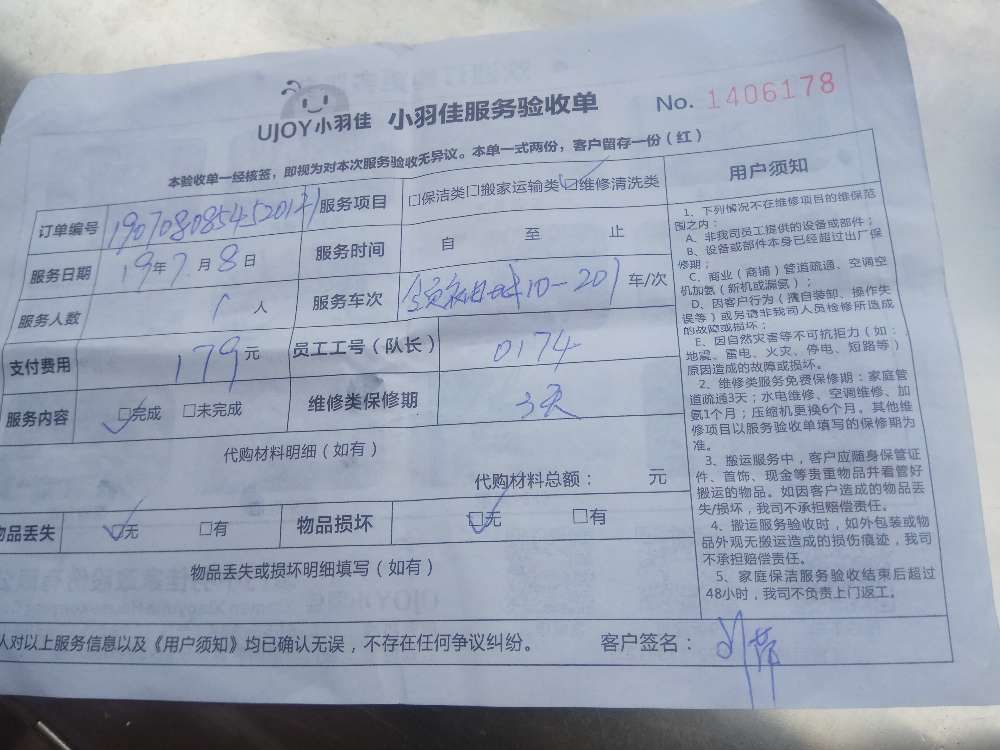 UJOY小羽佳 小羽佳服务验收单 No. 1406178
本验收单一经核签，即视为对本次服务验收无异议。本单一式两份，客户留存一份（红）
订单编号 服务项目 □保洁类□搬家运输类□维修清洗类
服务日期 19年7月8日 服务时间 自 至 止
服务人数 1人 服务车次 10-20 车/次
支付费用 179元 员工工号（队长） 0174
服务内容 □完成 □未完成 维修类保修期 3天
代购材料明细（如有）
代购材料总额： 元
物品丢失 □无 □有 物品损坏 □无 □有
物品丢失或损坏明细填写（如有）
人对以上服务信息以及《用户须知》均已确认无误，不存在任何争议纠纷。 客户签名：
用户须知
1、下列情况不在维修项目的维保范
围之内：
A、非我司员工提供的设备或部件；
B、设备或部件本身已经超过出厂保
修期；
C、商业（商铺）管道疏通、空调空
机加氨（新机或漏氨）；
D、因客户行为（擅自装卸、操作失
误等）或另请非我司人员检修所造成
的故障或损坏；
E、因自然灾害等不可抗拒力（如：
地震、雷电、火灾、停电、短路等）
原因造成的故障或损坏。
2、维修类服务免费保修期：家庭管
道疏通3天；水电维修、空调维修、加
氨1个月；压缩机更换6个月。其他维
修项目以服务验收单填写的保修期为
准。
3、搬运服务中，客户应随身保管证
件、首饰、现金等贵重物品并看管好
搬运的物品。如因客户造成的物品丢
失/损坏，我司不承担赔偿责任。
4、搬运服务验收时，如外包装或物
品外观无搬运造成的损伤痕迹，我司
不承担赔偿责任。
5、家庭保洁服务验收结束后超过
48小时，我司不负责上门返工。